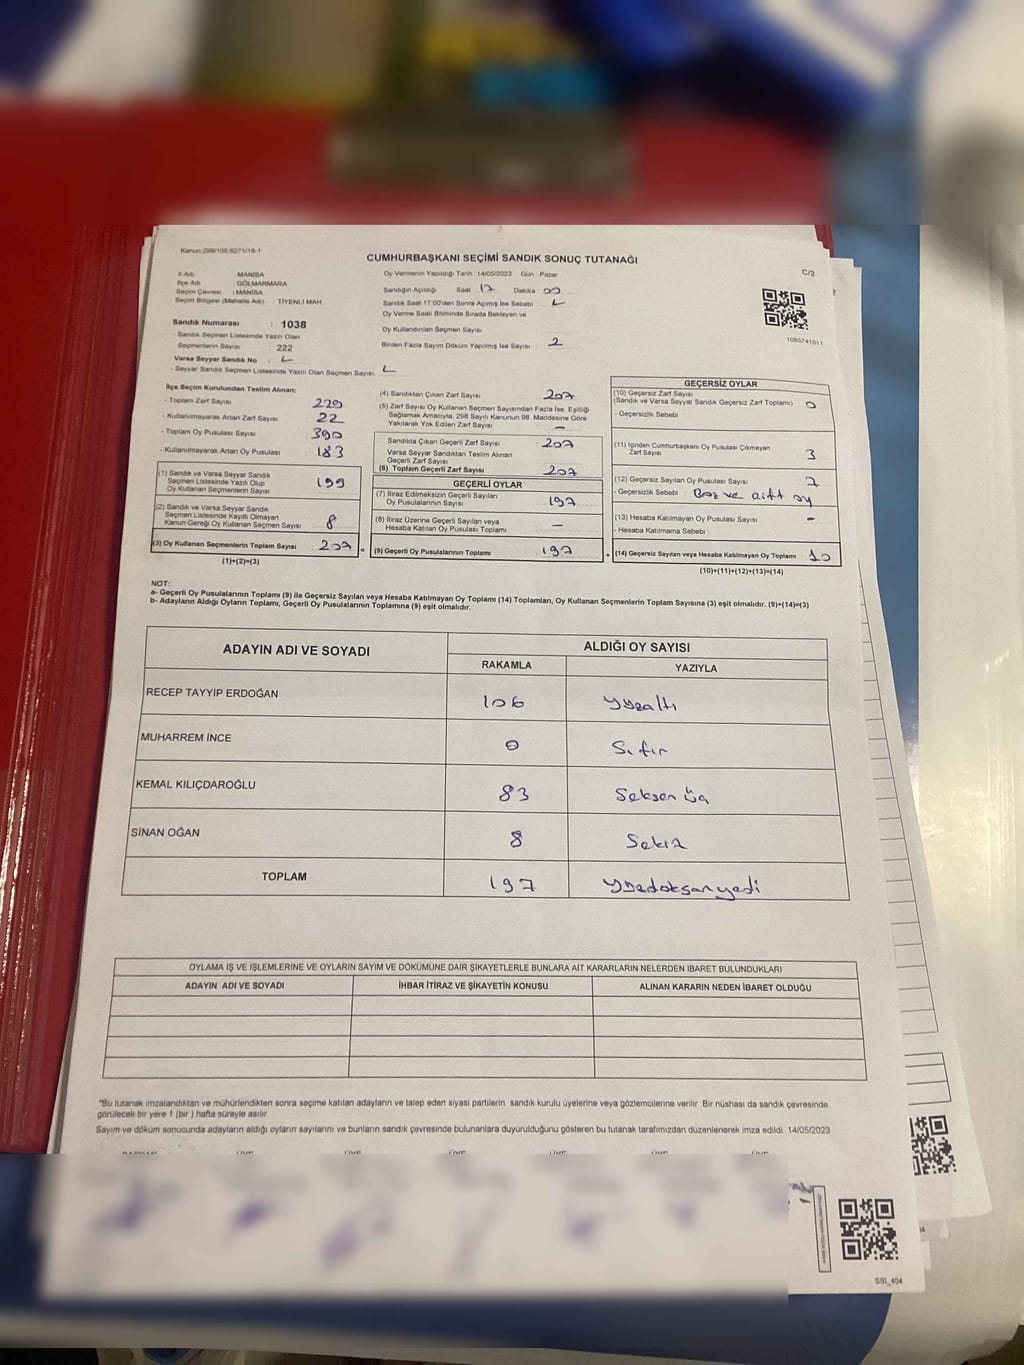 Kanun:298/105;6271/18-1
CUMHURBAŞKANI SEÇİMİ SANDIK SONUÇ TUTANAĞI
C/2
İl Adı : MANİSA
İlçe Adı : GÖLMARMARA
Seçim Çevresi : MANİSA
Seçim Bölgesi (Mahalle Adı) : TİYENLİ MAH
Sandık Numarası : 1038
- Sandık Seçmen Listesinde Yazılı Olan
Seçmenlerin Sayısı : 222
Varsa Seyyar Sandık No :
- Seyyar Sandık Seçmen Listesinde Yazılı Olan Seçmen Sayısı:
Oy Vermenin Yapıldığı Tarih : 14/05/2023 Gün : Pazar
Sandığın Açıldığı Saat 17 Dakika 00
Sandık Saat 17:00'den Sonra Açımış İse Sebebi
Oy Verme Saati Bitiminde Sırada Bekleyen ve
Oy Kullandırılan Seçmen Sayısı
Birden Fazla Sayım Döküm Yapılmış İse Sayısı 2
1093741011
İlçe Seçim Kurulundan Teslim Alınan;
- Toplam Zarf Sayısı 229
- Kullanılmayarak Artan Zarf Sayısı 22
- Toplam Oy Pusulası Sayısı 390
- Kullanılmayarak Artan Oy Pusulası 183
(1) Sandık ve Varsa Seyyar Sandık
Seçmen Listesinde Yazılı Olup
Oy Kullanan Seçmenlerin Sayısı 199
(2) Sandık ve Varsa Seyyar Sandık
Seçmen Listesinde Kayıtlı Olmayan
Kanun Gereği Oy Kullanan Seçmen Sayısı 8
(3) Oy Kullanan Seçmenlerin Toplam Sayısı 207
(1)+(2)=(3)
(4) Sandıktan Çıkan Zarf Sayısı 207
(5) Zarf Sayısı Oy Kullanan Seçmen Sayısından Fazla İse, Eşitliği
Sağlamak Amacıyla, 298 Sayılı Kanunun 98. Maddesine Göre
Yakılarak Yok Edilen Zarf Sayısı –
Sandıkta Çıkan Geçerli Zarf Sayısı 207
Varsa Seyyar Sandıktan Teslim Alınan
Geçerli Zarf Sayısı
(6) Toplam Geçerli Zarf Sayısı 207
GEÇERLİ OYLAR
(7) İtiraz Edilmeksizin Geçerli Sayılan
Oy Pusulalarının Sayısı 197
(8) İtiraz Üzerine Geçerli Sayılan veya
Hesaba Katılan Oy Pusulası Toplamı –
= (9) Geçerli Oy Pusulalarının Toplamı 197
GEÇERSİZ OYLAR
(10) Geçersiz Zarf Sayısı
(Sandık ve Varsa Seyyar Sandık Geçersiz Zarf Toplamı) 0
- Geçersizlik Sebebi
(11) İçinden Cumhurbaşkanı Oy Pusulası Çıkmayan
Zarf Sayısı 3
(12) Geçersiz Sayılan Oy Pusulası Sayısı 7
- Geçersizlik Sebebi : Boş ve çift oy
(13) Hesaba Katılmayan Oy Pusulası Sayısı –
- Hesaba Katılmama Sebebi
+ (14) Geçersiz Sayılan veya Hesaba Katılmayan Oy Toplamı 10
(10)+(11)+(12)+(13)=(14)
NOT:
a- Geçerli Oy Pusulalarının Toplamı (9) ile Geçersiz Sayılan veya Hesaba Katılmayan Oy Toplamı (14) Toplamları, Oy Kullanan Seçmenlerin Toplam Sayısına (3) eşit olmalıdır. (9)+(14)=(3)
b- Adayların Aldığı Oyların Toplamı, Geçerli Oy Pusulalarının Toplamına (9) eşit olmalıdır.
ADAYIN ADI VE SOYADI
ALDIĞI OY SAYISI
RAKAMLA YAZIYLA
RECEP TAYYİP ERDOĞAN 106 Yüzaltı
MUHARREM İNCE 0 Sıfır
KEMAL KILIÇDAROĞLU 83 Seksen üç
SİNAN OĞAN 8 Sekiz
TOPLAM 197 Yüzdoksanyedi
OYLAMA İŞ VE İŞLEMLERİNE VE OYLARIN SAYIM VE DÖKÜMÜNE DAİR ŞİKAYETLERLE BUNLARA AİT KARARLARIN NELERDEN İBARET BULUNDUKLARI
ADAYIN ADI VE SOYADI İHBAR İTİRAZ VE ŞİKAYETİN KONUSU ALINAN KARARIN NEDEN İBARET OLDUĞU
"Bu tutanak imzalandıktan ve mühürlendikten sonra seçime katılan adayların ve talep eden siyasi partilerin sandık kurulu üyelerine veya gözlemcilerine verilir. Bir nüshası da sandık çevresinde
görülecek bir yere 1 (bir ) hafta süreyle asılır.
Sayım ve döküm sonucunda adayların aldığı oyların sayılarını ve bunların sandık çevresinde bulunanlara duyurulduğunu gösteren bu tutanak tarafımızdan düzenlenerek imza edildi. 14/05/2023
SSI_404